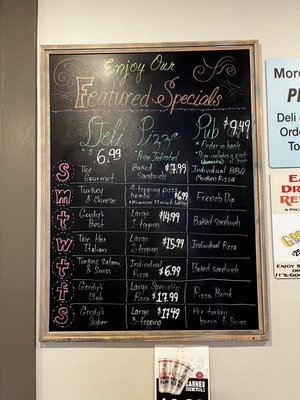 Enjoy Our
Featured Specials
Deli
$6.99
Pizza
*Price Indicated
Pub $9.49
* Order in back
S
The Gourmet
Baked Sandwich $7.99
Individual BBQ Chicken Pizza
m
Turkey & Cheese
4-topping pizza bombs $6.99
French Dip
t
Goody's Best
Large 1-topping $14.99
Baked Sandwich
w
The Hot Italian
Large 2-topping $15.99
Individual Pizza
t
Turkey, Salami & Swiss
Individual Pizza $6.99
Baked Sandwich
f
Goody's Club
Large Specialty Pizza $17.99
Pizza Bomb
s
Goody's Super
Large 3-topping $17.49
Hot turkey bacon & Swiss
More
Deli
Orde
To
CANNED
COCKTAILS